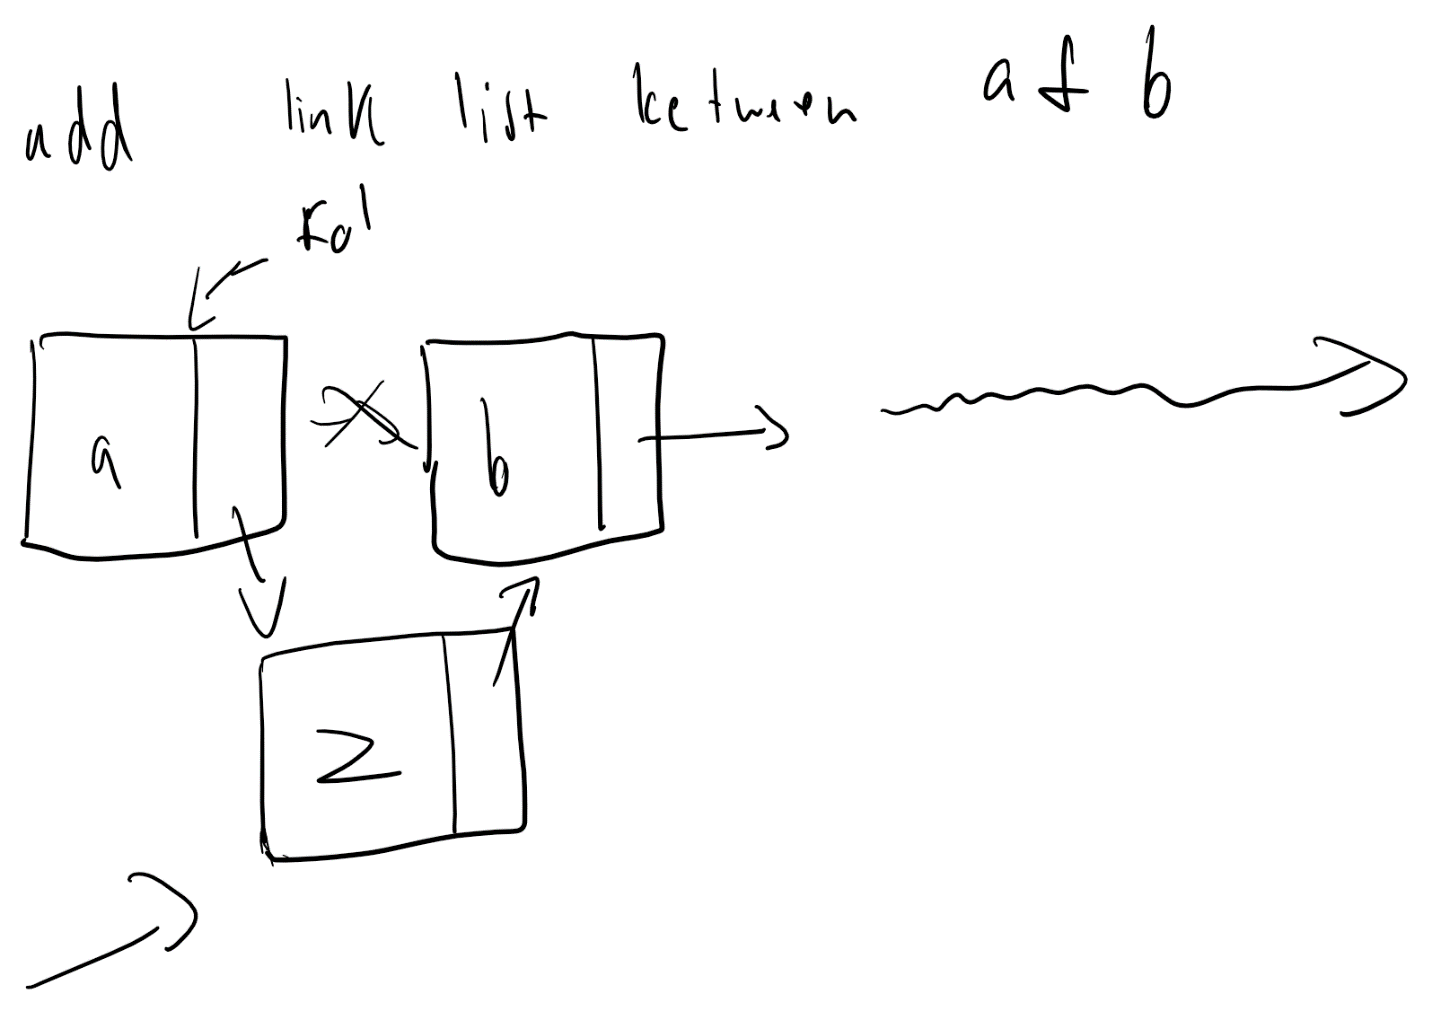 add link list between a & b
a
b
Z